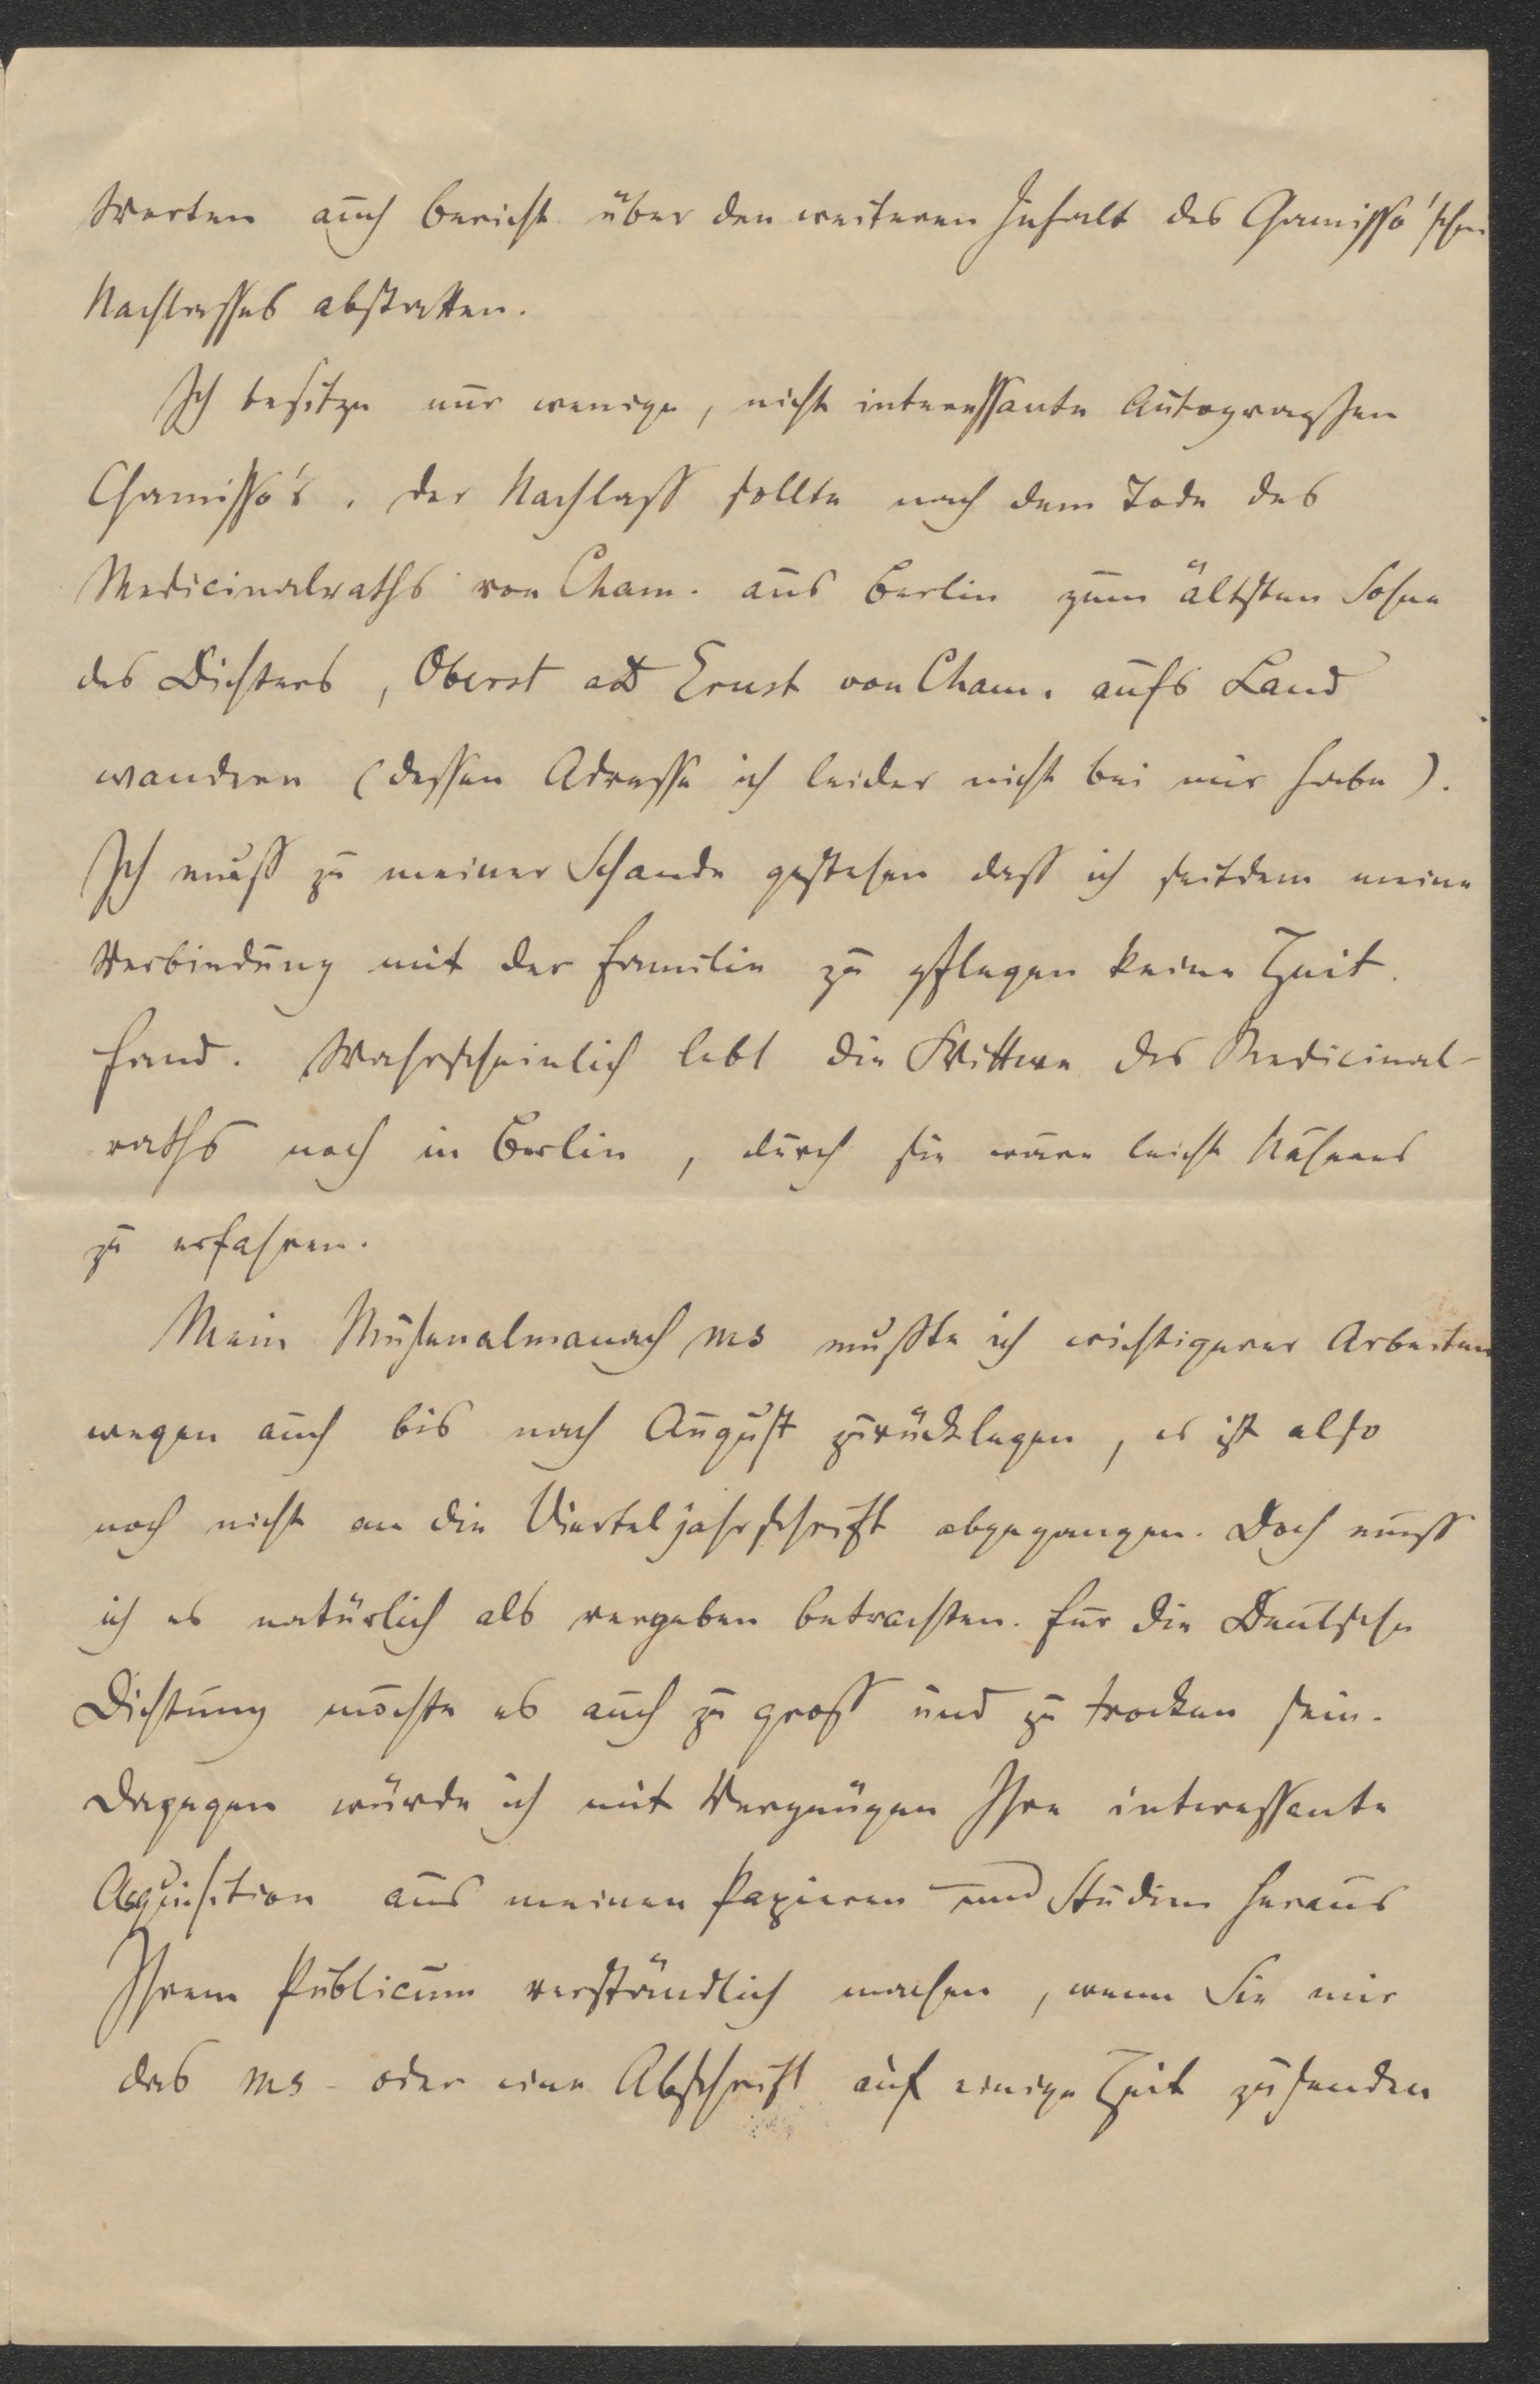 Worten auch Bericht über den weiteren Inhalt des Chamisso'schen
Nachlasses abstatten.
Ich besitze nur wenige, nicht interessante Autographen
Chamisso's. Der Nachlass sollte nach dem Tode des
Medicinalraths von Cham. aus Berlin zum ältsten Sohne
des Dichters, Oberst aD Ernst von Cham. aufs Land
wandern (dessen Adresse ich leider nicht bei mir habe).
Ich muss zu meiner Schande gestehen dass ich seitdem meine
Verbindung mit der Familie zu pflegen keine Zeit
fand. Wahrscheinlich lebt die Wittwe des Medicinal-
raths noch in Berlin, durch sie wäre leicht Näheres
zu erfahren.
Mein Musenalmanach ms musste ich wichtigerer Arbeiten
wegen auch bis nach August zurücklegen, es ist also
noch nicht an die Vierteljahrschrift abgegangen. Doch muss
ich es natürlich als vergeben betrachten. Für die Deutsche
Dichtung möchte es auch zu gross und zu trocken sein.
Dagegen würde ich mit Vergnügen Ihre interessante
Acquisition aus meinen Papieren und Studien heraus
Ihrem Publicum verständlich machen, wenn Sie mir
das ms oder eine Abschrift auf einige Zeit zusenden